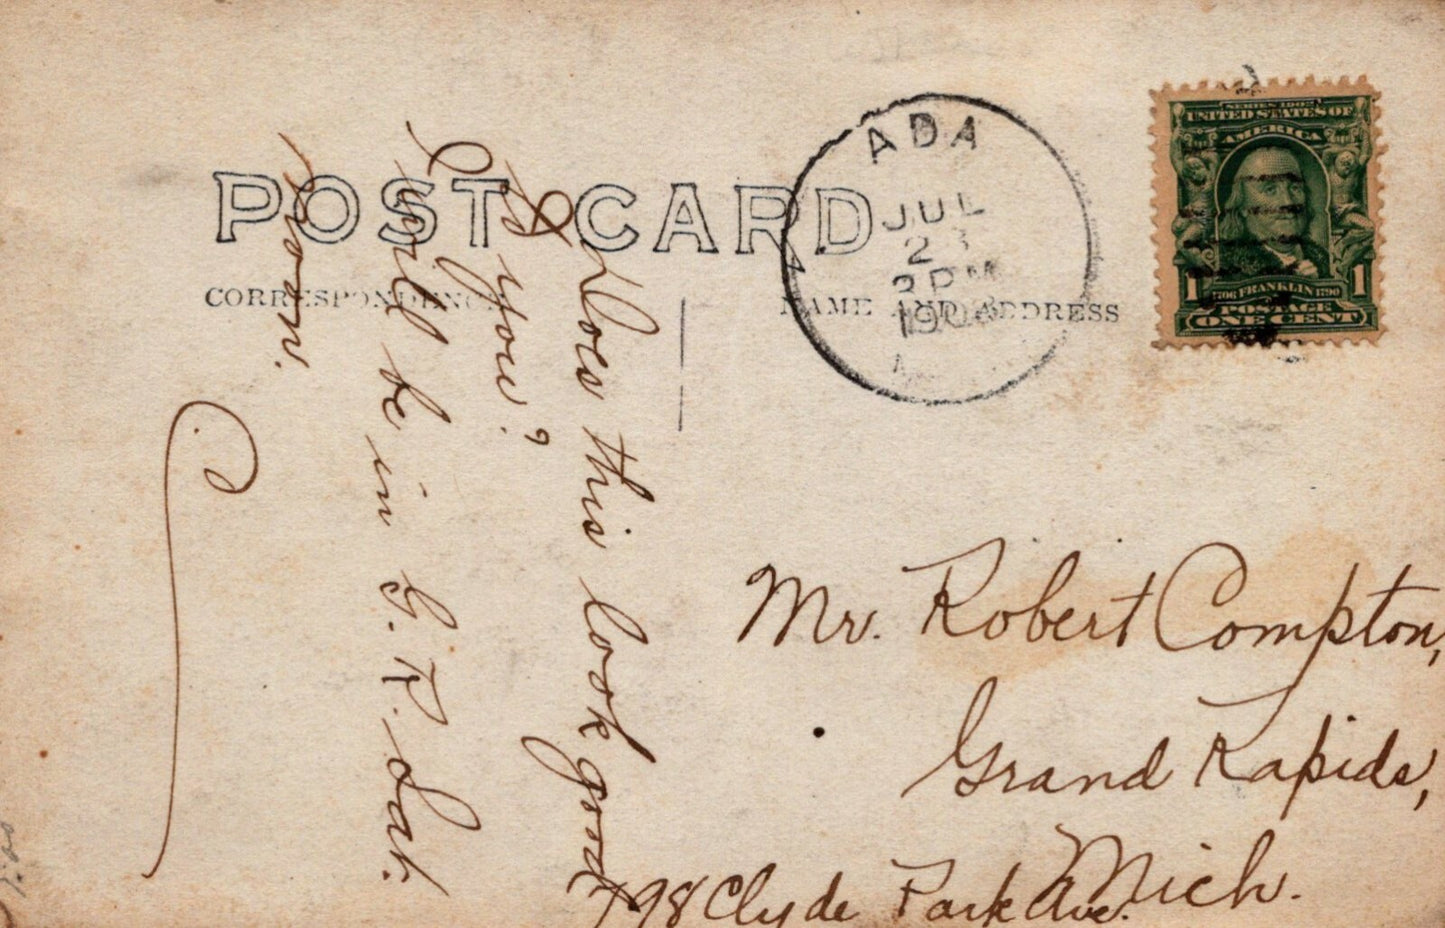 POST CARD
CORRESPONDENCE
NAME AND ADDRESS
ADA
JUL
23
PM
SERIES 1902
UNITED STATES OF
AMERICA
1 1
1706 FRANKLIN 1790
POSTAGE
ONE CENT
Does this look good
to you?
will be in G. R. Sat.
noon.
C.
Mr. Robert Compton,
Grand Rapids,
Mich.
798 Clyde Park Ave.